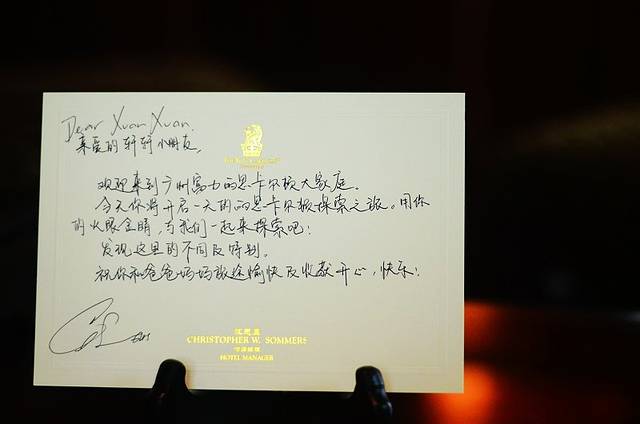 Dear Xuan Xuan.
亲爱的轩轩小朋友,
欢迎来到广州富力的思卡尔顿大家庭。
今天你将开启一天的的思卡尔顿探索之旅。用你
的火眼金睛,与我们一起来探索吧!
发现这里的不同及特别。
祝你和爸爸妈妈旅途愉快及收获开心,快乐!
CHRISTOPHER W. SOMMERS
HOTEL MANAGER